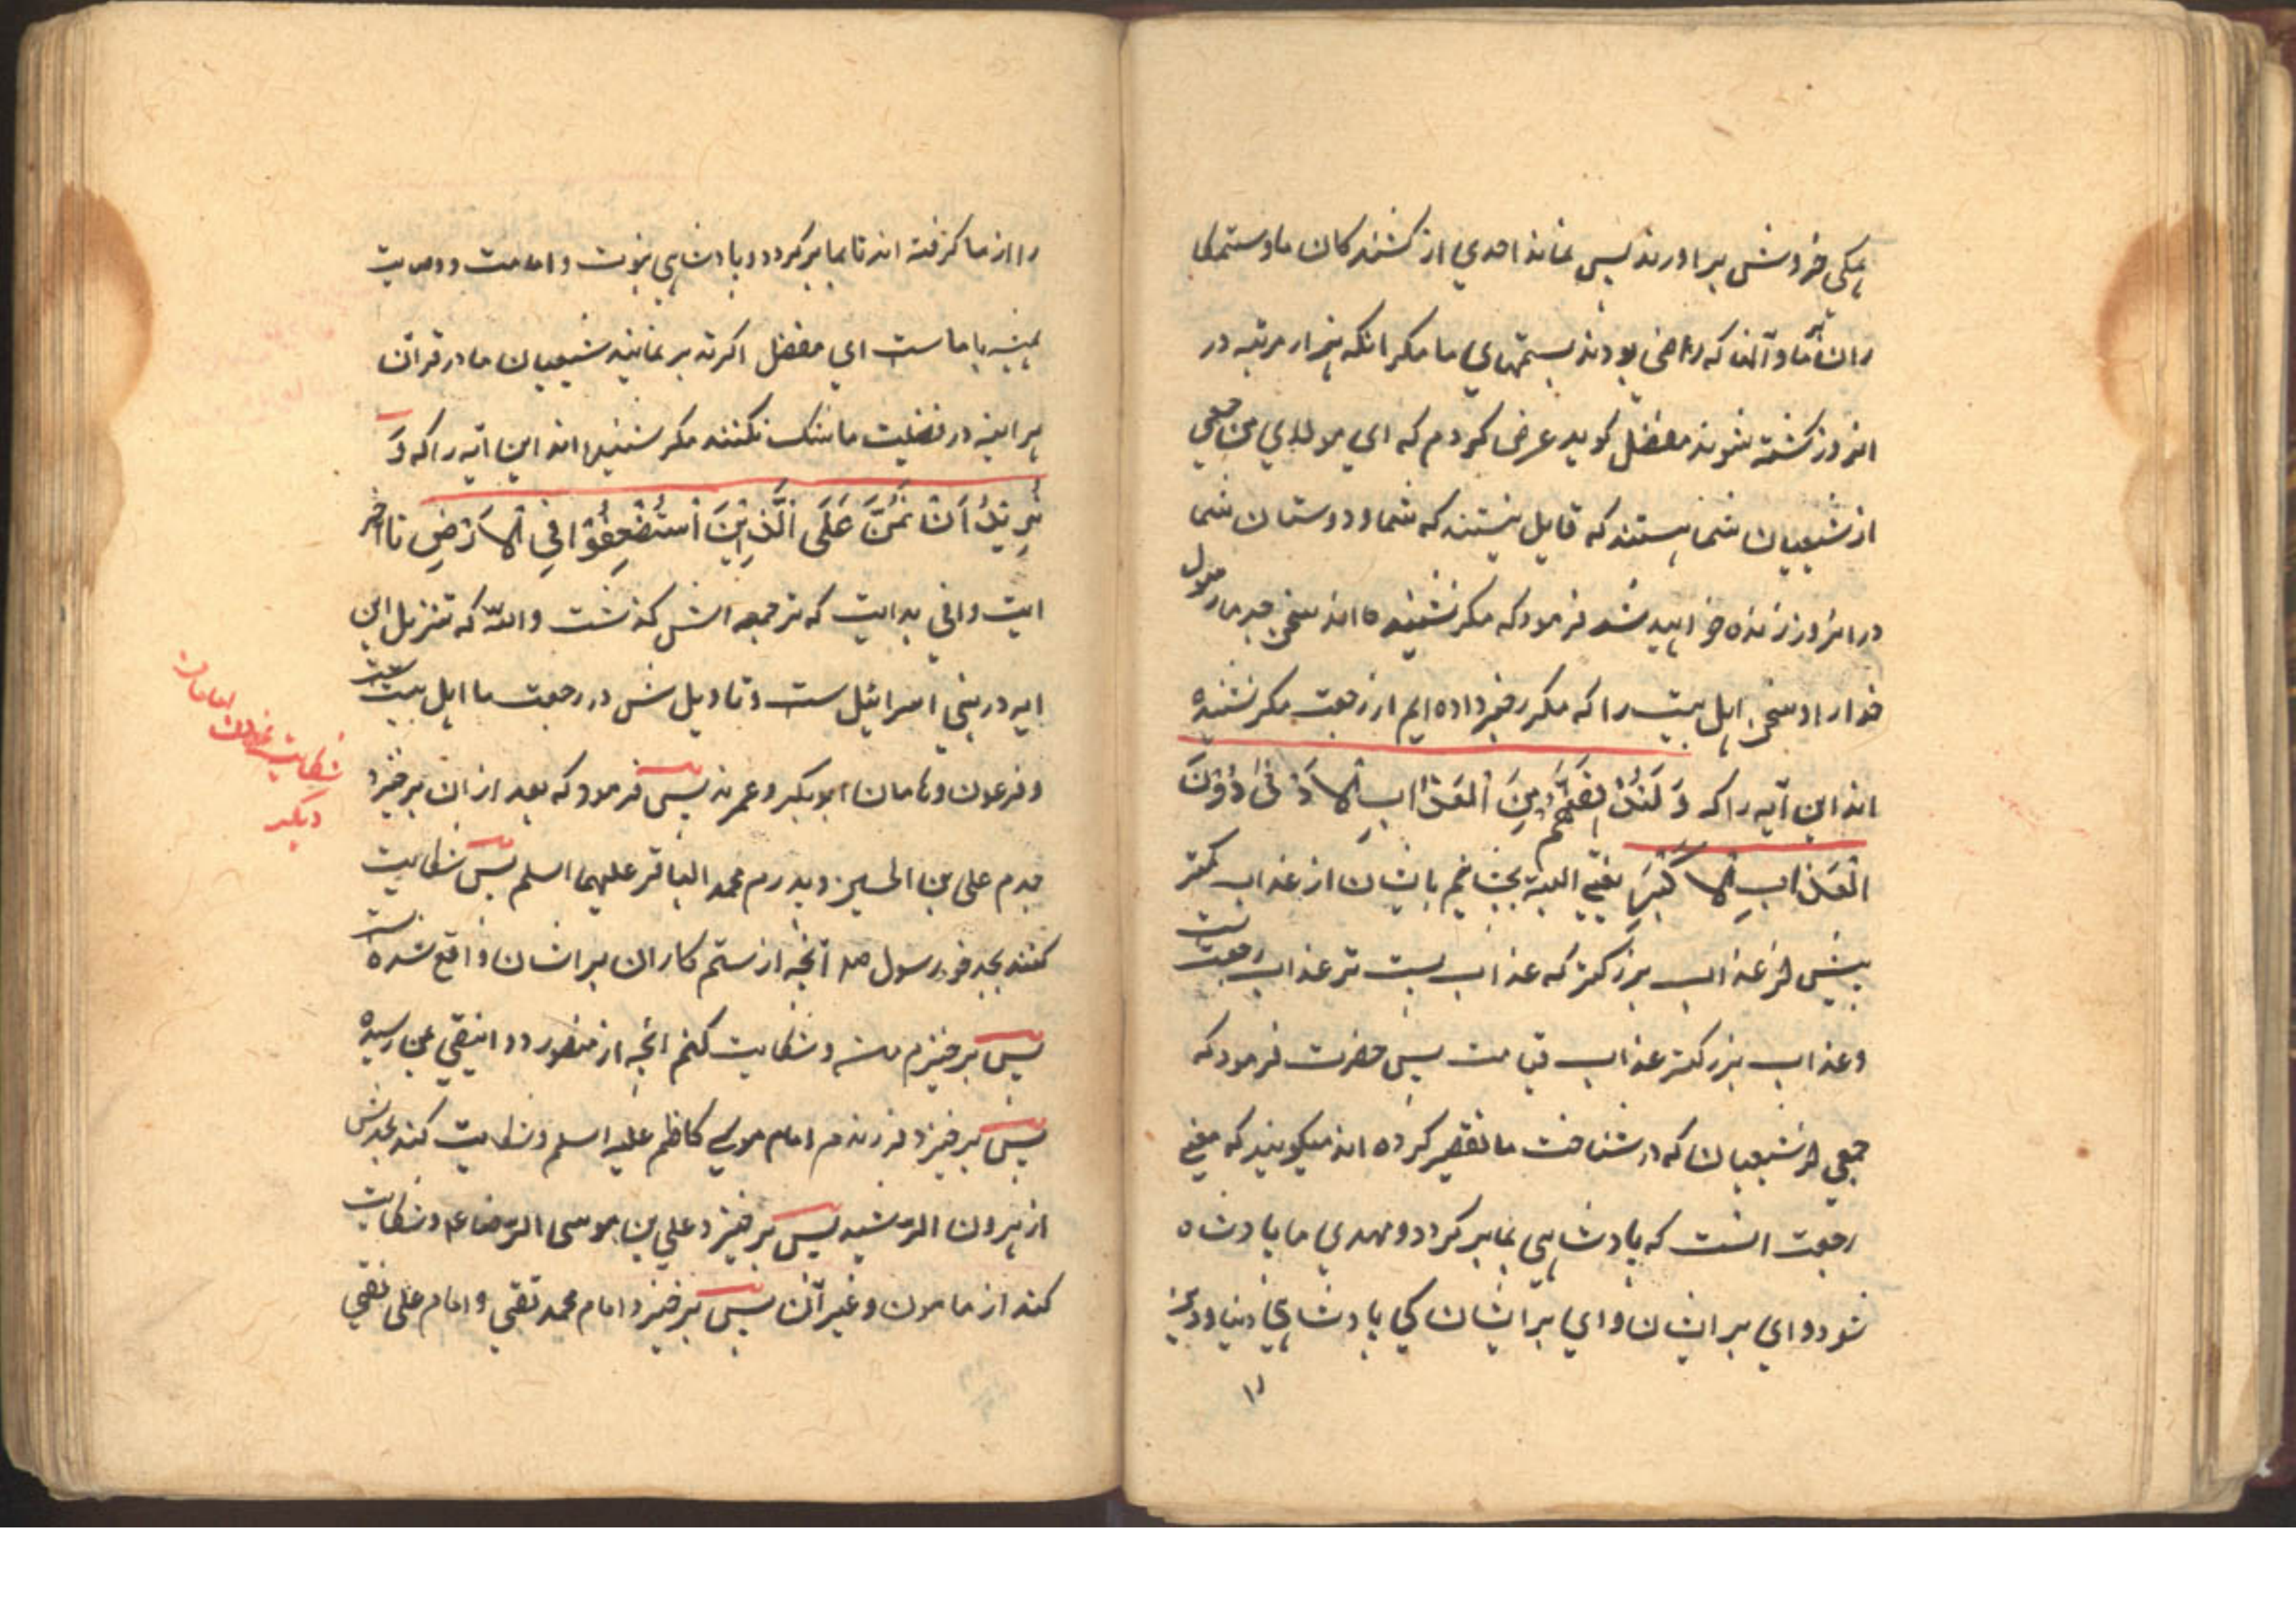 همکی خروش براورند پس نماند احدي از کشندکان ما و ستمکا
ران بر ما و آنان که راضي بودند بستمهاي ما مکر انکه هزار مرتبه در
انروز کشته شوند مفضل کوید عرض کردم که اي مولاي من جمعي
از شیعیان شما هستند که قایل نیستند که شما و دوستان شما
در انروز زنده خواهید شد فرمود که مکر نشنیده اند سخن جد ما رسول
خدا را و سخن اهل بیت را که مکرر خبر داده ایم از رجعت مکر نشنیده
اند این آیه را که وَ لَنُذِیقَنَّهُم مِنَ الْعَذَابِ الاَدْنیٰ دُوْنَ
الْعَذَابِ الاَکْبَرِ یعني البته بچشانیم بایشان از عذاب کمتر
پیش از عذاب بزرکتر که عذاب پست تر عذاب رجعت است
و عذاب بزرکتر عذاب قیامت پس حضرت فرمود که
جمعي از شیعیان که در شناخت ما تقصیر کرده اند میکویند که معني
رجعت انست که پادشاهي بما بر کردد و مهدي ما پادشاه
شود واي بر ایشان واي بر ایشان کي پادشاهي دنیا و دین
را
را از ما کرفته اند تا بما بر کردد و پادشاهي نبوت و امامت و وصایت
همیشه با ماست اي مفضل اکر تدبر نمایند شیعیان ما در قرآن
هر اینه در فضیلت ما شک نکنند مکر نشنیده اند این آیه را که وَ
نُرِیْدُ اَنْ نَمُنَّ عَلَی الَّذِیْنَ اسْتُضْعِفُوْا فِي الاَرْضِ تا اخر
ایت وافي هدایت که ترجمه اش کذشت والله که تنزیل این
ایه در بني اسرائیل ست و تاویلش در رجعت ما اهل بیت است
و فرعون و هامان ابو بکر و عمرند پس فرمود که بعد از ان بر خیزد
جدم علی بن الحسین و پدرم محمد الباقر علیهما السلم پس شکایت
کنند بجد خود رسول صلم آنچه از ستم کاران بر ایشان واقع شده است
پس بر خیزم من و شکایت کنم آنچه از منصور دوانیقي بمن رسیده
پس بر خیزد فرزندم امام موسي کاظم علیه السلم و شکایت کند بجدش
از هرون الرشید پس بر خیزد علي بن موسی الرضا عم و شکایت
کند از مامون و غیر آن پس بر خیزد امام محمد تقي و امام علي نقي
شکایت نمودن امامان
دیکر